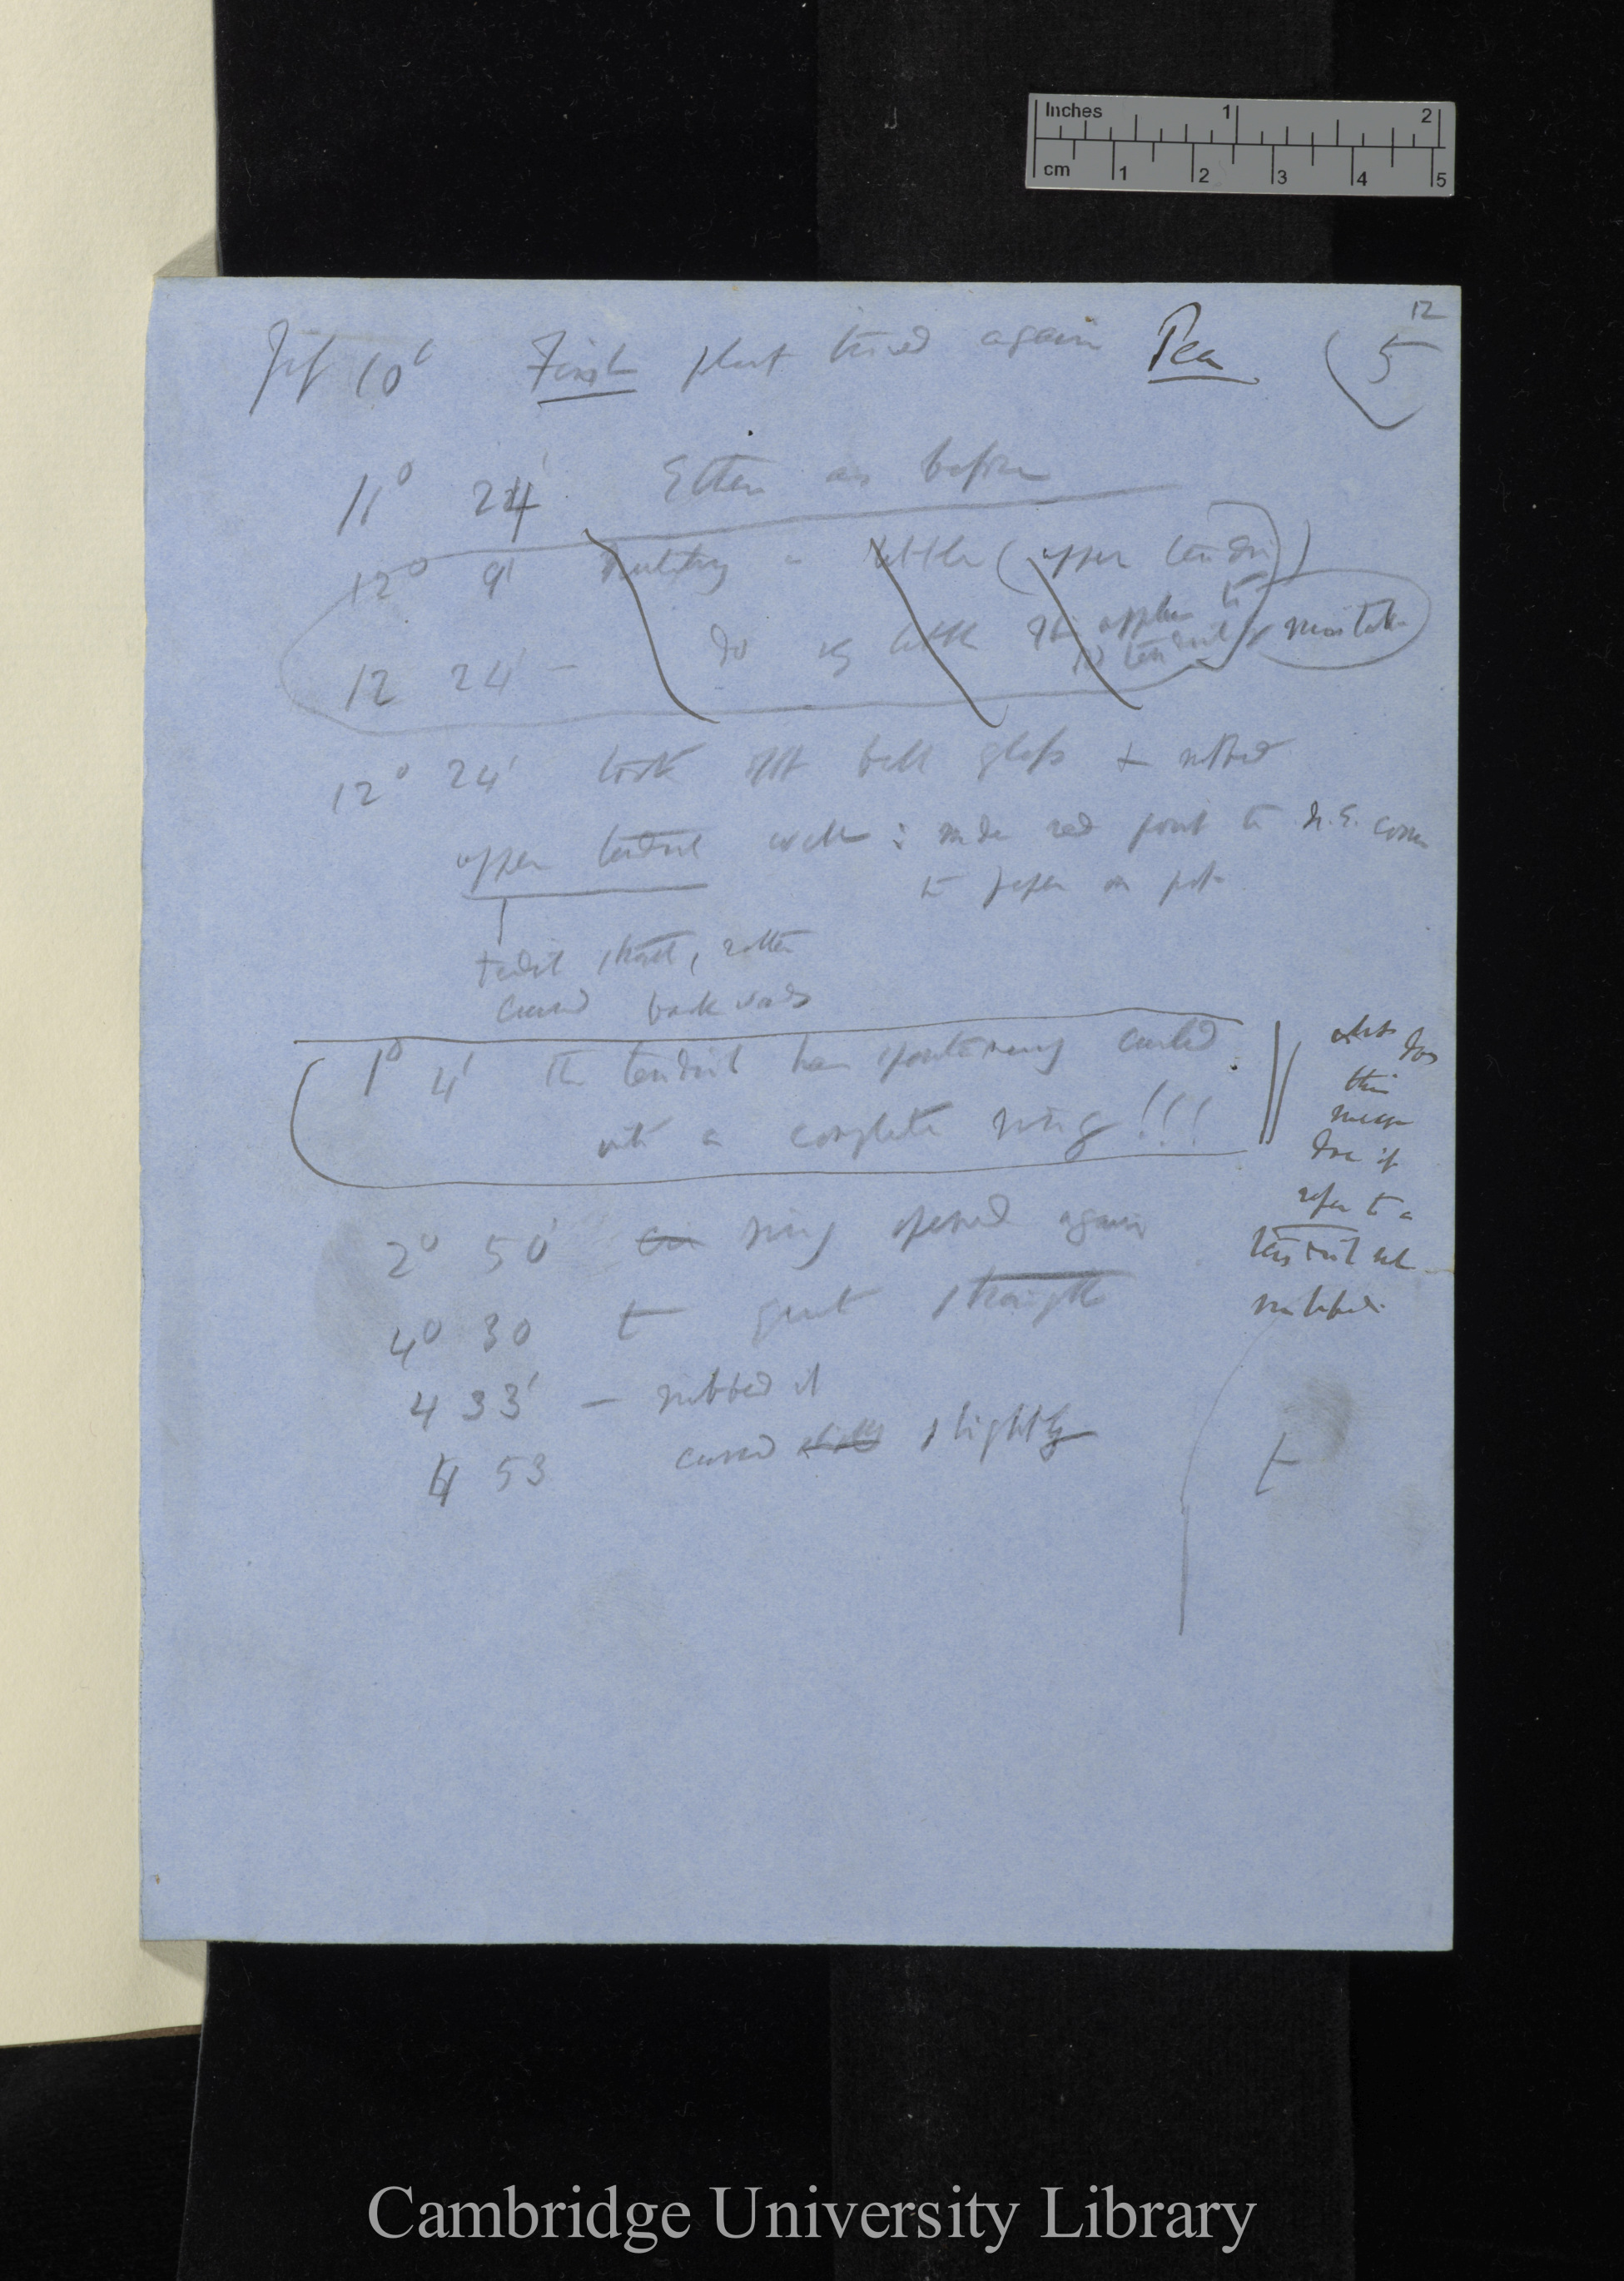 Inches 1 2
cm 1 2 3 4 5
12
10 First plant tried again Pea (5
11° 24' Ether as before
12° 9' a little (upper tendril)
12 24' — do little applies to tendril mistake
12° 24' took off bell glass & rubbed
upper tendril well: made red point to N.E. corner
to paper on pot
tendril straight, rather
curved backwards
1° 4' The tendril has spontaneously curled
into a complete ring!!!
what does
this
mean
does it
refer to a
tendril not
rubbed
2° 50' ring opened again
4° 30 t quite straight
4 33' — rubbed it
4 53 curved slightly
t
Cambridge University Library